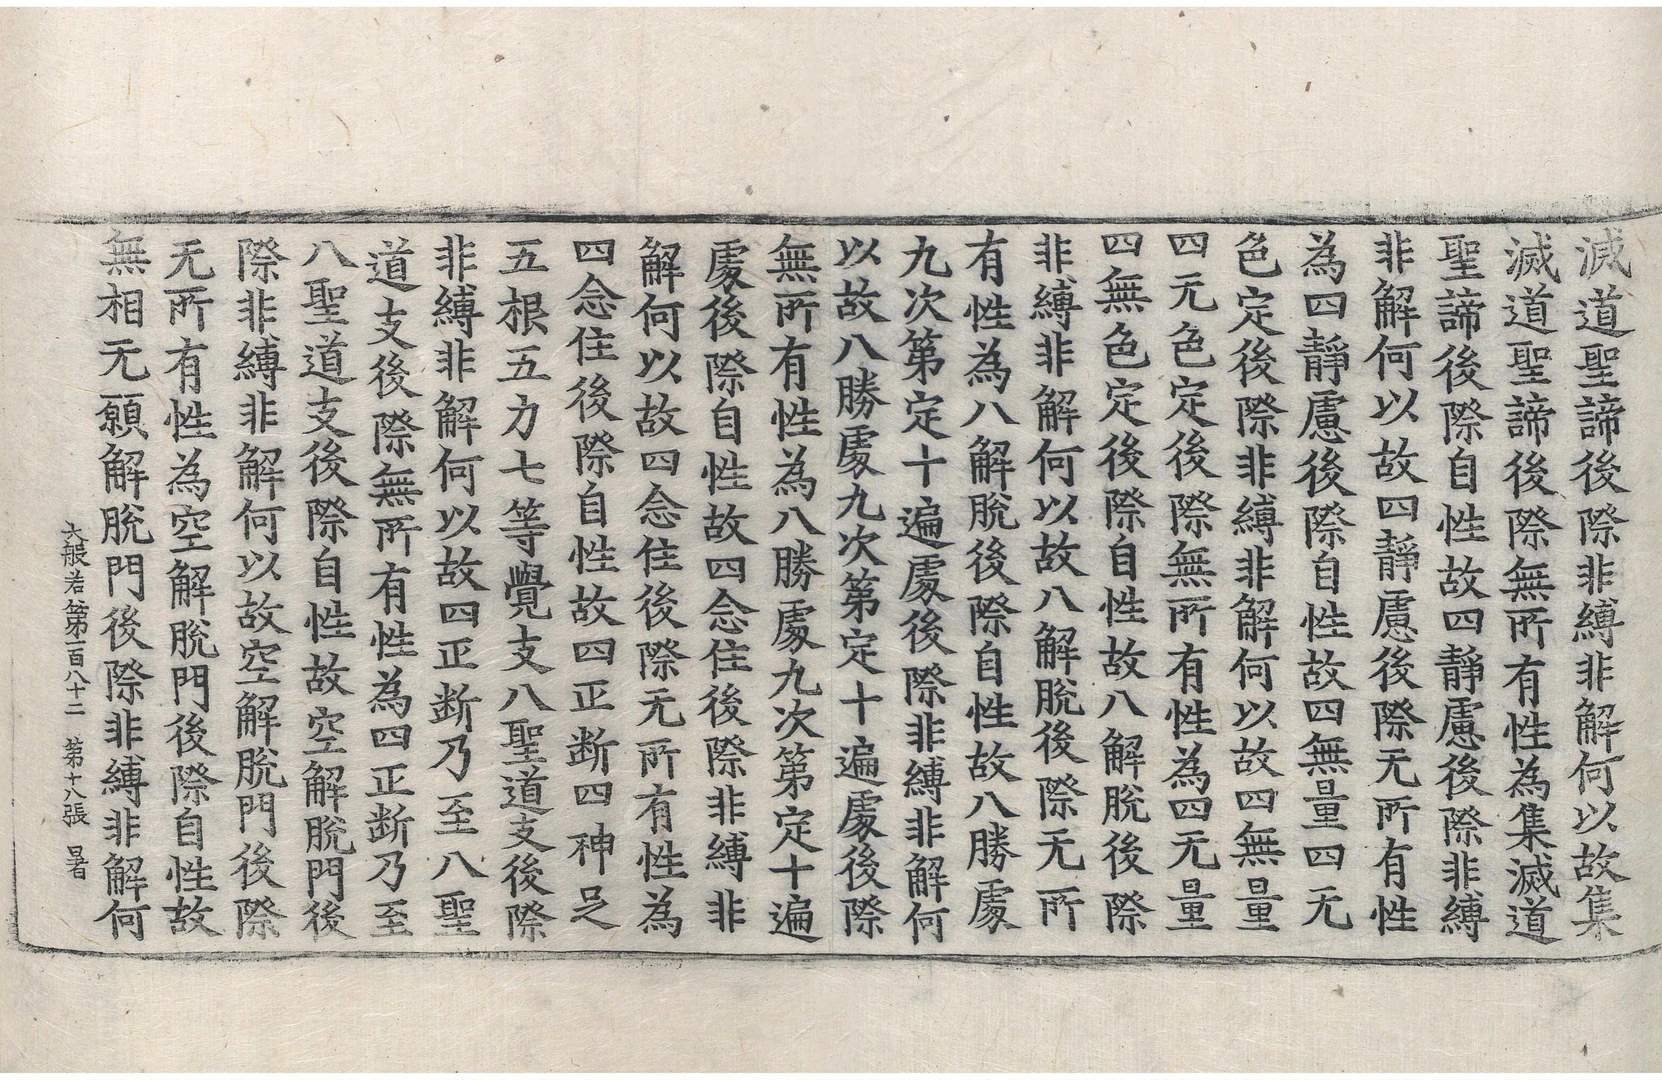 滅道聖諦後際非縛非解何以故集
滅道聖諦後際無所有性為集滅道
聖諦後際自性故四靜慮後際非縛
非解何以故四靜慮後際无所有性
為四靜慮後際自性故四無量四无
色定後際非縛非解何以故四無量
四无色定後際無所有性為四无量
四無色定後際自性故八解脫後際
非縛非解何以故八解脫後際无所
有性為八解脫後際自性故八勝處
九次第定十遍處後際非縛非解何
以故八勝處九次第定十遍處後際
無所有性為八勝處九次第定十遍
處後際自性故四念住後際非縛非
解何以故四念住後際无所有性為
四念住後際自性故四正断四神足
五根五力七等覺支八聖道支後際
非縛非解何以故四正断乃至八聖
道支後際無所有性為四正断乃至
八聖道支後際自性故空解脫門後
際非縛非解何以故空解脫門後際
无所有性為空解脫門後際自性故
無相无願解脫門後際非縛非解何
大般若第一百八十二　第十八張　暑